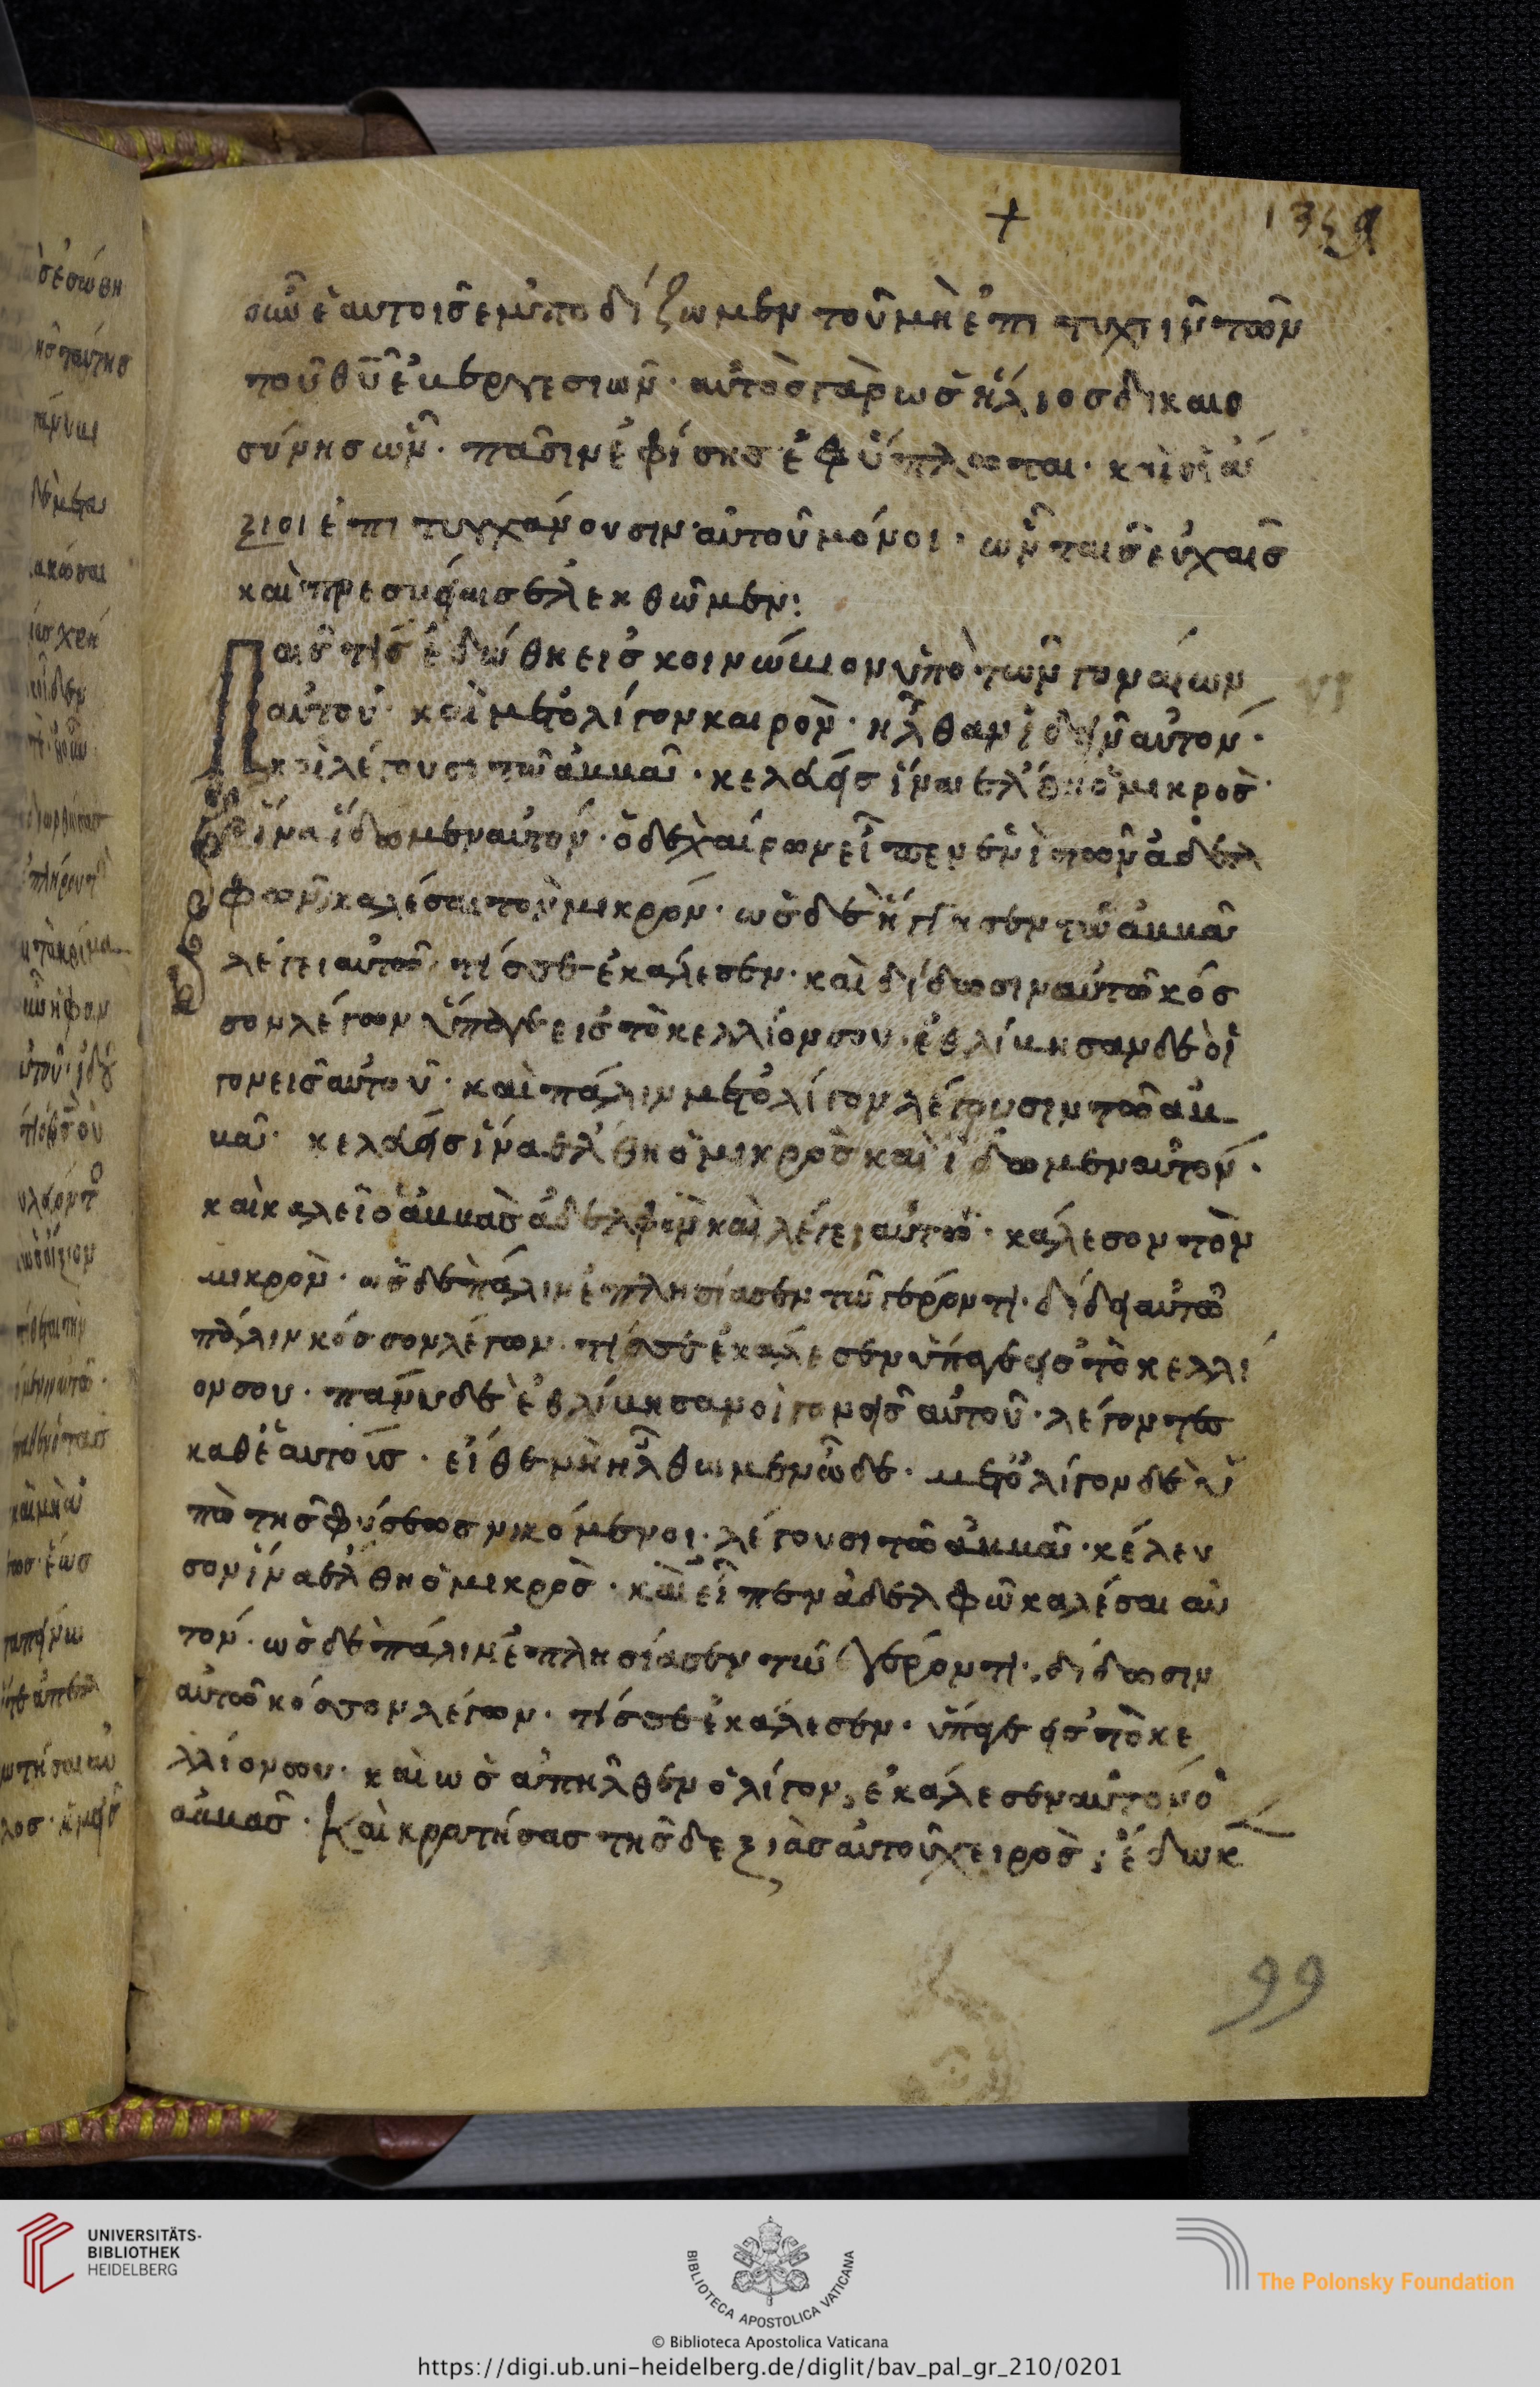 134 99
+
σῶν ἑαυτοῖς ἐμποδίζωμεν τοῦ μὴ ἐπιτυχεῖν τῶν
τοῦ θῦ εὐεργεσιῶν· αὐτὸς γὰρ ὡς ἥλιος δικαιο
σύνης ὢν· πᾶσιν ἐφίσης ἐφύπλωται· καὶ οἱ ἄ
ξιοι ἐπιτυγχάνουσιν αὐτοῦ μόνοι· ὧν ταῖς εὐχαῖς
καὶ πρεσβείαις ἐλεηθῶμεν:
Παῖς τίς ἐδώθη εἰς κοινώβιον ὑπὸ τῶν γονέων
αὐτοῦ· καὶ μετ ὀλίγον καιρὸν· ἦλθαν ἰδεῖν αὐτόν·
καὶ λέγουσι τῶ ἀββᾶ· κελεύεις ἵνα ἔλθη ὁ μικρὸς·
ἵνα ἴδωμεν αὐτόν· ὁ δὲ χαίρων εἶπεν ἑνὶ τῶν ἀδελ
φῶν καλέσαι τὸν μικρόν· ὡς δὲ ἤγγισεν τῶ ἀββᾶ
λέγει αὐτῶ τίς σε ἐκάλεσεν· καὶ δίδωσιν αὐτῶ κόσ
σον λέγων ὕπαγε εἰς τὸ κελλίον σου· ἐθλίβησαν δὲ οἱ
γονεῖς αὐτοῦ· καὶ πάλιν μετ ὀλίγον λέγουσιν τῶ ἀβ
βᾶ· κελεύεις ἵνα ἔλθη ὁ μικρὸς καὶ ἴδωμεν αὐτόν·
καὶ καλεῖ ὁ ἀββᾶς ἀδελφὸν καὶ λέγει αὐτῶ· κάλεσον τὸν
μικρὸν· ὡς δὲ πάλιν ἐπλησίασεν τῶ γέροντι· δίδει αὐτῶ
πάλιν κόσσον λέγων· τίς σε ἐκάλεσεν ὕπαγε εἰς τὸ κελλί
ον σου· πάνυ δὲ ἐθλίβησαν οἱ γονεῖς αὐτοῦ· λέγοντες
καθ ἑαυτοῖς· εἴθε μὴ ἤλθωμεν ὧδε· μετ ὀλίγον δὲ ὑ
πὸ τῆς φύσεως νικόμενοι· λέγουσι τῶ ἀββᾶ· κέλευ
σον ἵνα ἔλθη ὁ μικρὸς· καὶ εἶπεν ἀδελφῶ καλέσαι αὐ
τόν· ὡς δὲ πάλιν ἐπλησίασεν τῶ γέροντι· δίδωσιν
αὐτῶ κόσσον λέγων· τίς σε ἐκάλεσεν· ὕπαγε εἰς τὸ κε
λλίον σου· καὶ ὡς ἀπῆλθεν ὀλίγον, ἐκάλεσεν αὐτὸν ὁ
ἀββᾶς· Καὶ κρατήσας τῆς δεξιὰς αὐτοῦ χειρὸς, ἔδωκ
99
UNIVERSITÄTS-
BIBLIOTHEK
HEIDELBERG
BIBLIOTECA APOSTOLICA VATICANA
The Polonsky Foundation
© Biblioteca Apostolica Vaticana
https://digi.ub.uni-heidelberg.de/diglit/bav_pal_gr_210/0201